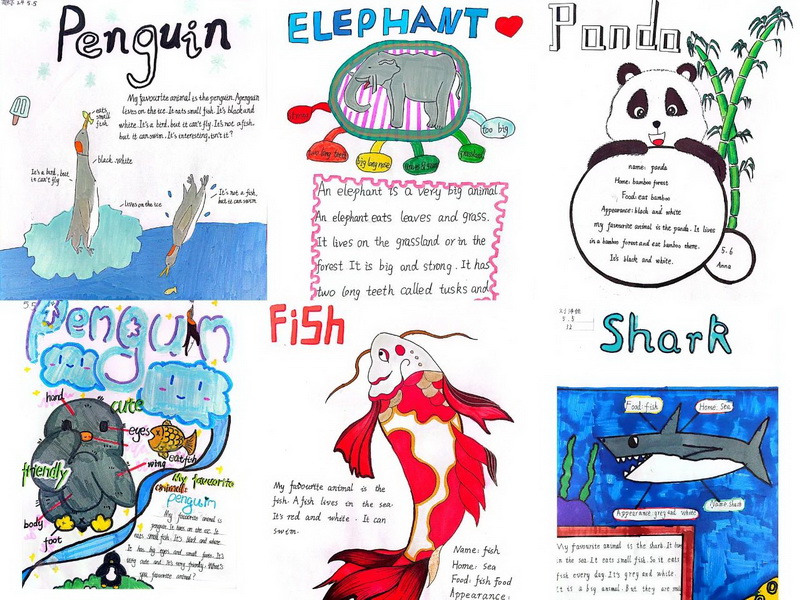 5.5
Penguin
My favourite animal is the penguin. A penguin
lives on the ice. It eats small fish. It's black and
white. It's a bird, but it can't fly. It's not a fish,
but it can swim. It's interesting, isn't it?
eats
small
fish
black. white
It's a bird, but
in can't fly
lives on the ice
It's not a fish,
but it can swim
ELEPHANT
too big
An elephant is a very big animal
An elephant eats leaves and grass.
It lives on the grassland or in the
forest It is big and strong. It has
two long teeth called tusks and
Panda
name: panda
Home: bamboo forest
Food: eat bamboo
Appearance: black and white
my favourite animal is the panda. It lives
in a bamboo forest and eat bamboo there.
It's black and white.
5.6
Anna
5.5
Penguin
hand
cute
eyes
eat fish
friendly
wing
My favorite
animal:
penguin
body
foot
My favorite animal is
penguin. It lives on the ice. It
eats small fish. It's black and white.
It has big eyes and small foots. It's
very cute and It's very friendly. What's
you favourite animal?
Fish
My favourite animal is the
fish. A fish lives in the sea.
It's red and white. It can
swim.
Name: fish
Home: sea
Food: fish food
Appearance:
5.5
12
Shark
Food: fish
Home: sea
Name: Shark
Appearance: grey and white
My favourite animal is the shark. It live
in the sea. It eats small fish. So it eats
fish every day. It's grey and white.
It is a big animal. But they are